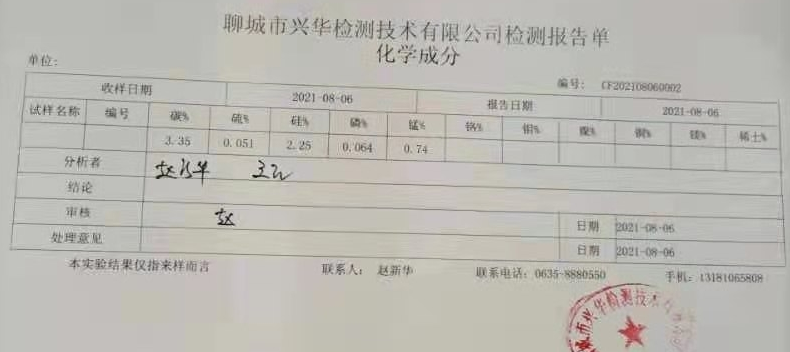 聊城市兴华检测技术有限公司检测报告单
化学成分
单位:
编号: CF202108060002
收样日期 2021-08-06 报告日期 2021-08-06
试样名称 编号 碳% 硫% 硅% 磷% 锰% 铬% 钼% 镍% 铜% 镁% 稀土%
3.35 0.051 2.25 0.064 0.74
分析者 赵新华
结论
审核 赵 日期 2021-08-06
处理意见 日期 2021-08-06
本实验结果仅指来样而言 联系人: 赵新华 联系电话: 0635-8880550 手机: 13181065808
城市兴华检测技术有